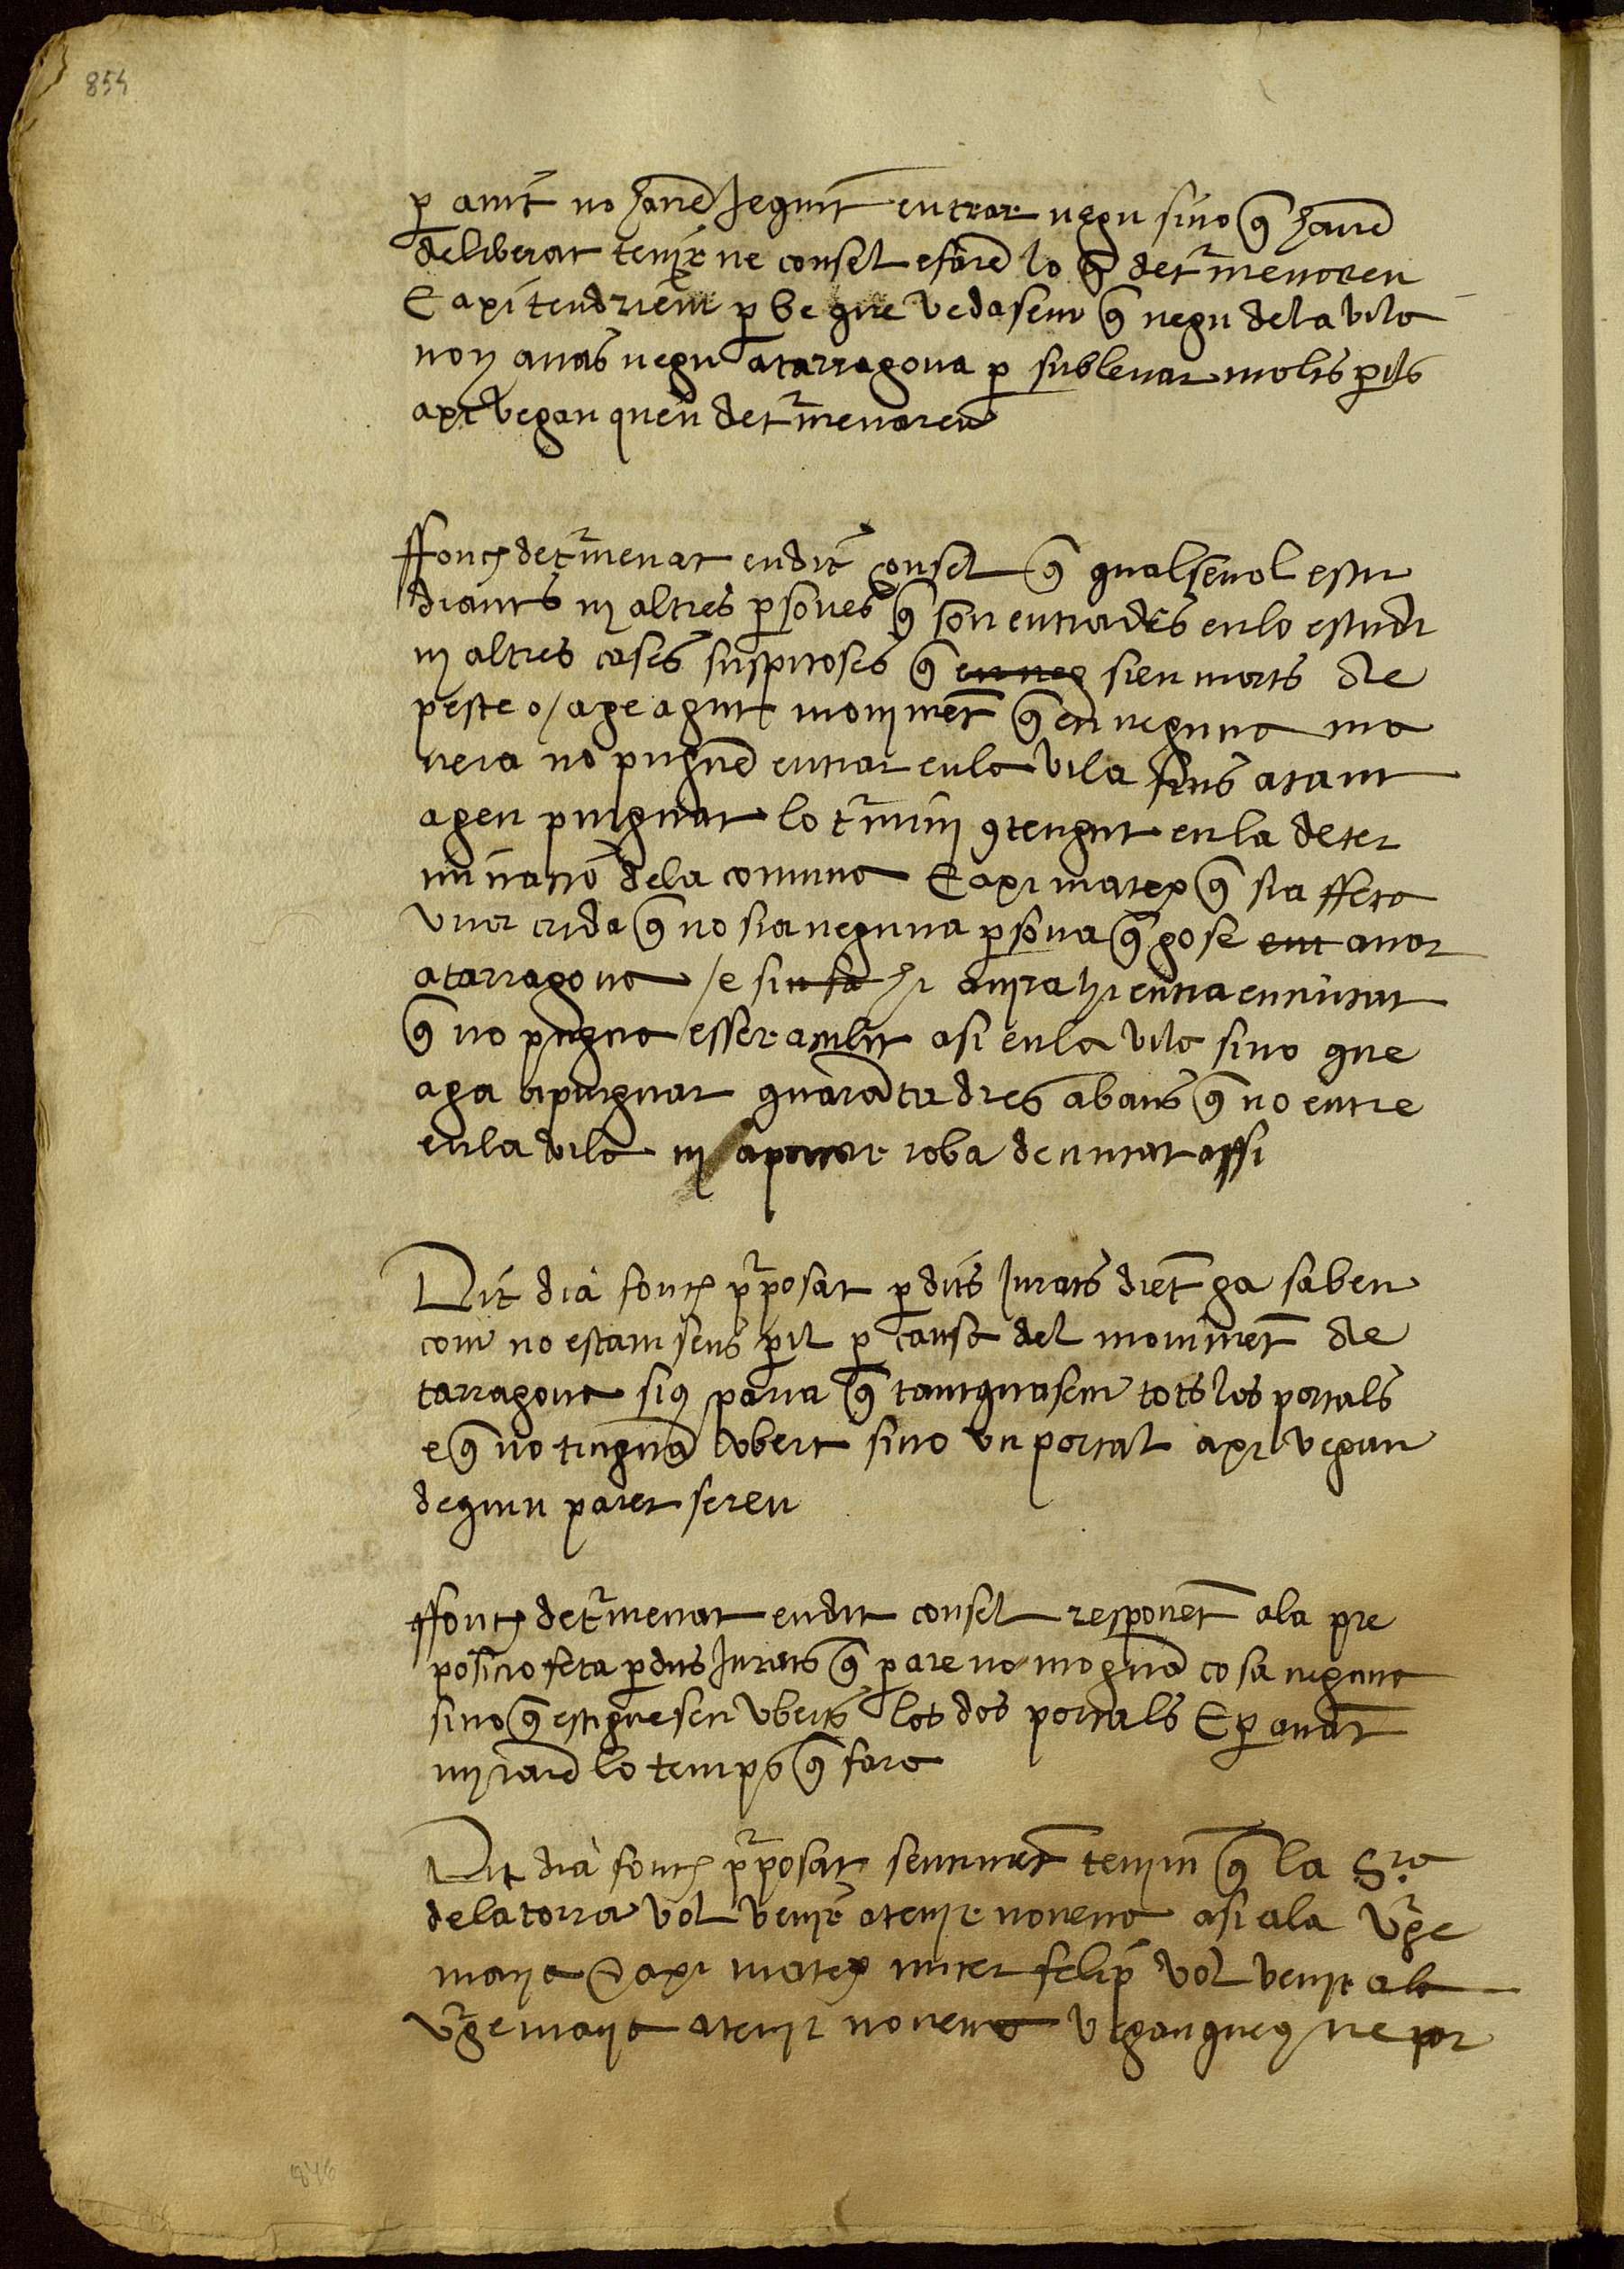 854
p avit no havē Jegut entrar negu sino q̄ havē
deliberat tenirne consel e farē lo q̄ det̄menoren
E axi tendriem p be que vedasem q̄ negu dela vila
noy anas negu atarragona p sublevar molts perils
axi vegan quen det̄menaren
ffonch det̄menat endit consel q̄ qualsevol estu
diants ni altres psones q̄ son entrades enlo estudi
ni altres cases suspitoses q̄ en neg sien morts de
peste o / age agut moviment q̄ en neguna ma
nera no pugnē entrar enla vila fins atant
agen purgat lo t̄mini 9tengut enla deter
minatio dela comuna E axi matex q̄ sia ffeta
una crida q̄ no sia neguna psona q̄ gose ent anar
atarragona / e si n sa hi anira hi entra enciutat
q̄ no pugna esser acullit asi enla vila sino que
aga apurgar quaranta dies abans q̄ no entre
enla vila ni aportar roba de ciutat assi
Dit dia fonch pposat p dits Jurats dient ga saben
com no estam sens pil p causa del moviment de
tarragona sius paria q̄ tanquasem tots los portals
e q̄ no tingna ubert sino un portal axi vegan
de quin paret seren
ffonch det̄menat endit consel responent ala pre
posicio feta p dits Jurats q̄ p are no mogna cosa neguna
sino q̄ estiguesen uberts los dos portals E p avant
miraré lo temps q̄ fara
Dit dia fonch pposat sentiment tenim q̄ la Sra
dela torra vol venir atenir novena asi ala Vge
maria E axi matex micer felip vol venir ala
Vge maria atenir novena vegan queus ne par
846